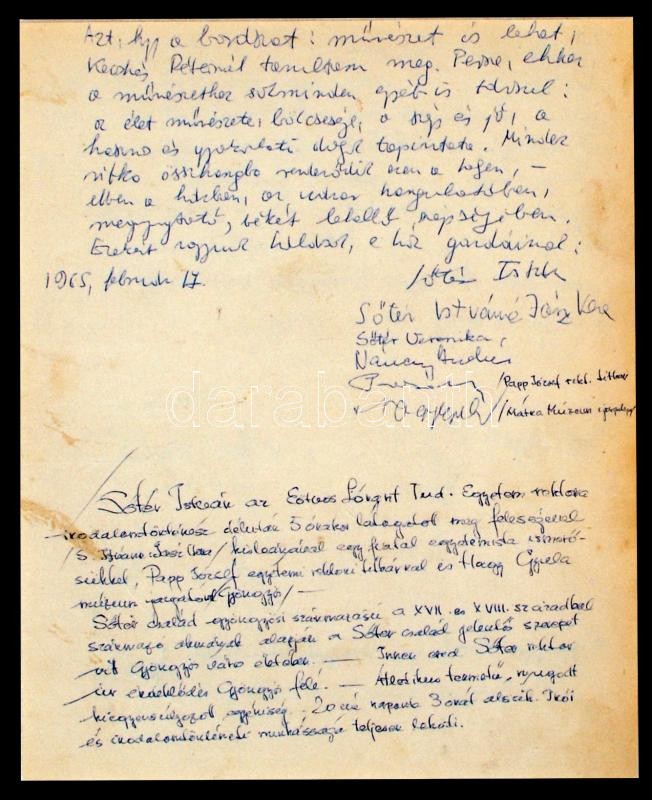 Azt, hogy a borászat: művészet is lehet,
Kecskés Péternél tanultam meg. Persze, ehhez
a művészethez sokminden egyéb is társul:
az élet művészete, bölcsesége, a szép és jó, a
hasznos és gyakorlati dolgok tapintata. Mindez
ritka összhangba rendeződik ezen a helyen, –
ebben a házban, az udvar hangulatában,
megnyugtató, békét lehellő szépségében.
Ezekért vagyunk hálásak, e ház gazdáinak:
1965, február 17.
Sőtér István
Sőtér Istvánné Jász Vera
Sőtér Veronika,
/Papp József rekt. titkár
/Mátra Múzeum igazgatója/
darabanth
Sőtér István az Eötvös Lóránt Tud. Egyetem rektora
irodalomtörténész délután 3 órakor látogatott meg feleségével
/S. Istvánné Jász Vera/ kisleányával egy fiatal egyetemista ismerő-
sükkel, Papp József egyetemi rektori titkárral és Nagy Gyula
múzeum igazgatóval /Gyöngyös/ —
Sőtér család gyöngyösi származású a XVII. és XVIII. századból
származó okmányok alapján a Sőtér család jelentős szerepet
vitt Gyöngyös város életében. — Innen ered Sőtér rektor
úr érdeklődés Gyöngyös felé. — Atletikus termetű, nyugodt
kiegyensúlyozott egyéniség. 20 éve naponta 3 órát alszik. Írói
és irodalomtörténeti munkássága teljesen leköti.